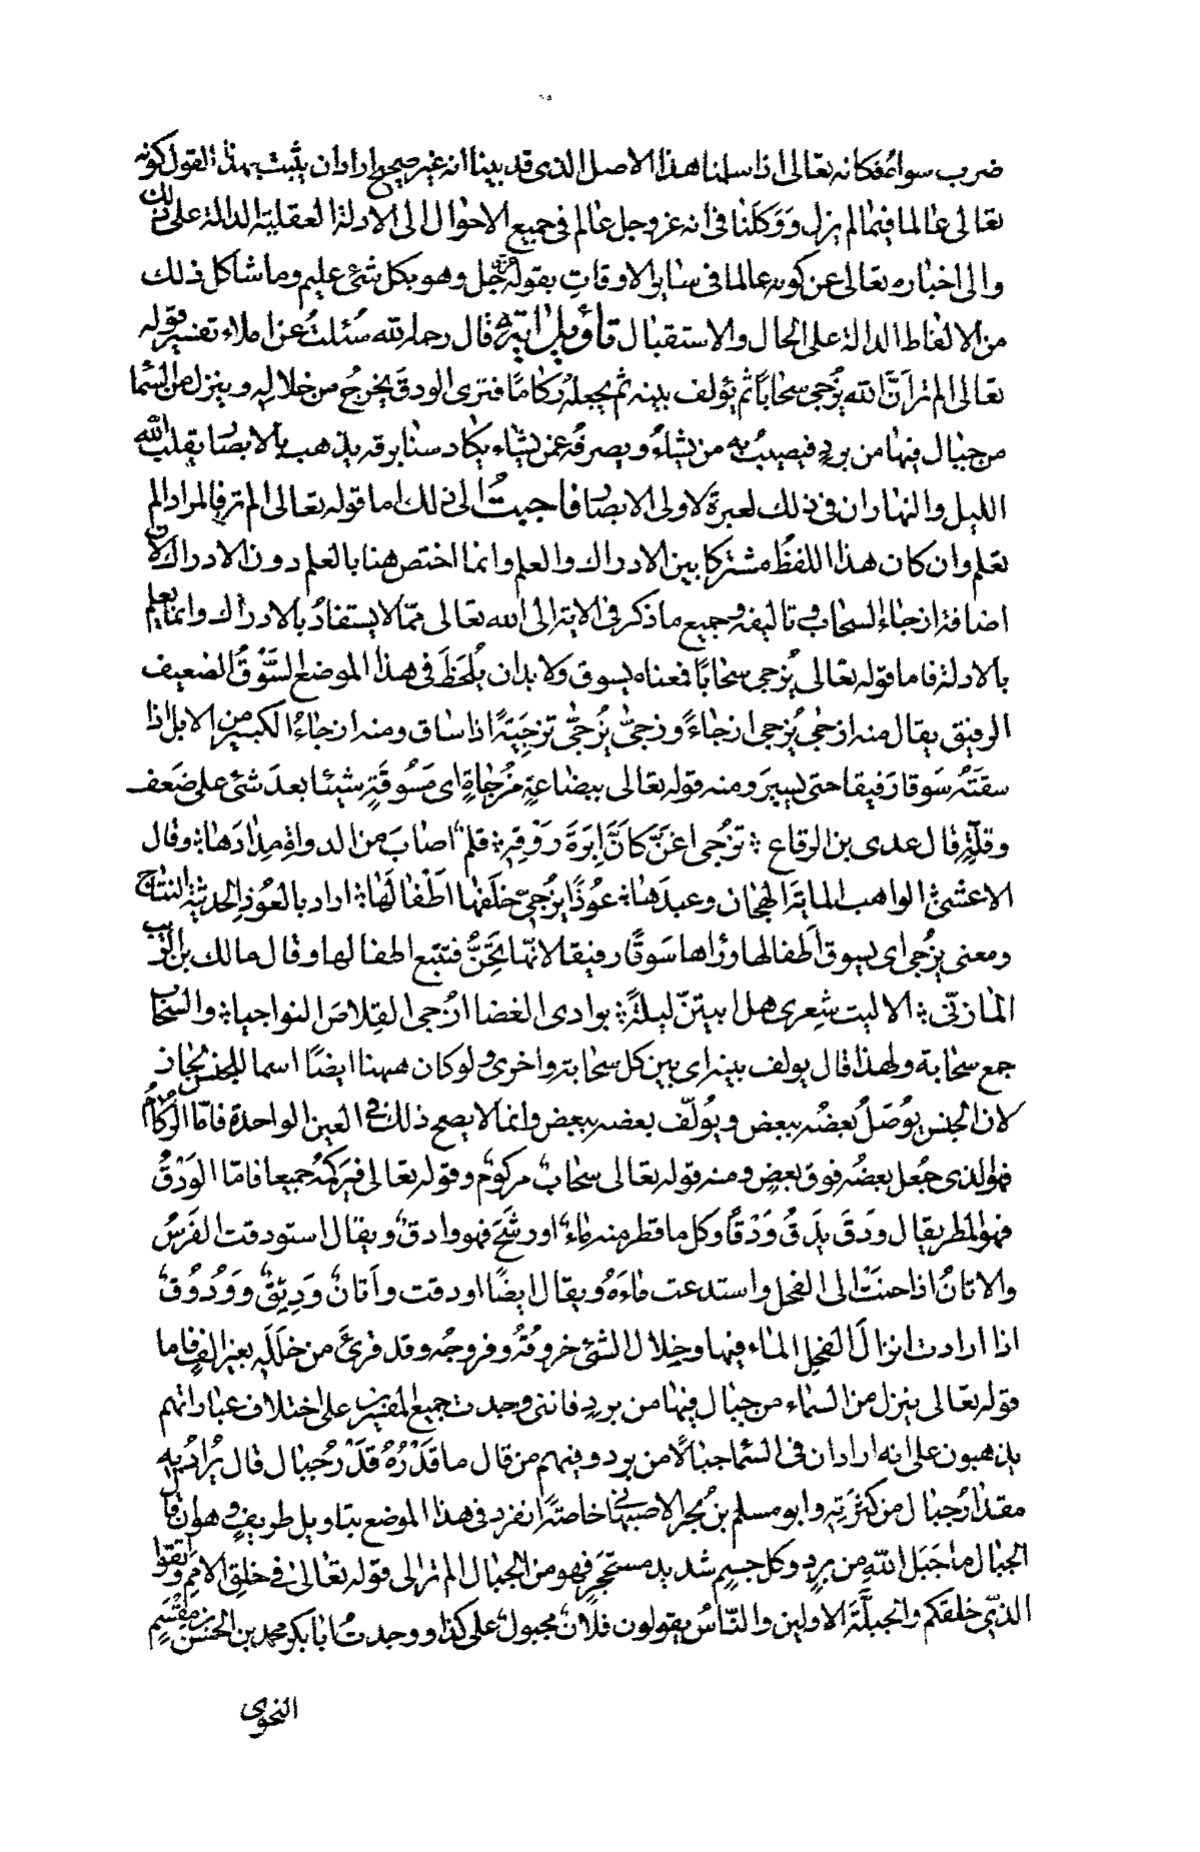 ضرب سواءٌ فكانه تعالى اذا سلمنا هذا الاصل الذى قد بينا انه غير صحيح اراد ان يثبت بهذا القول كونه
تعالى عالما فيما لم يزل وَوَكَلَنا فى انه عز وجل عالم فى جميع الاحوال الى الادلة العقلية الدالة على ذلك
والى اخباره تعالى عن كونه عالما فى ساير الاوقاتِ بقوله جل وهو بكل شئ عليم وما شاكل ذلك
من الالفاظ الدالة على الحال والاستقبال تأويل اٰية قال رحمه الله سُئلتُ عن املاء تفسير قوله
تعالى الم تر اَنَّ الله يُزجى سحاباً ثم يؤلف بينه ثم يجعلهُ رُكاماً فترى الودقَ يخرجُ من خلاله وينزل من السماء
من جبال فيها من بردٍ فيصيبُ به من يشاءُ ويصرفُه عمن يشاء يكاد سنا برقه يذهب بالابصار يقلب الله
الليل والنهار ان فى ذلك لعبرةً لاولى الابصار فاجبتُ الى ذلك اما قوله تعالى الم تر فالمراد الم
تعلم وان كان هذا اللفظُ مشتركا بين الادراك والعلم وانما اختص هنا بالعلم دون الادراك لان
اضافة ازجاء السحاب وتاليفه وجميع ما ذكر فى الاية الى الله تعالى ممّا لا يستفادُ بالادراك وانما يعلم
بالادلة فاما قوله تعالى يُزجى سحابًا فمعناه يسوق ولا بد ان يُلحَظَ فى هذا الموضع السَّوْقُ الضعيف
الرفيق يقال منه ازجٰى يُزجى ازجاءً وزجىّٰ يُزَجّى تزجِيَةً اذا ساق ومنه ازجاءُ الكبير من الابل اذا
سقتَه سَوقا رفيقا حتى يسيرَ ومنه قوله تعالى ببضاعةٍ مُزجاةٍ اى مَسُوقَةٍ شيئا بعدَ شئ على ضَعف
وقلّةٍ قال عدى بن الرقاع ؛ تزجى اغنَّ كاَنَّ اِبرَةَ رَوْقِهِ ؛ قلمٌ اصابَ من الدواة مِدادَها ؛ وقال
الاعشىٰ ؛ الواهب الماية الهجان وعبدَها ؛ عُوذًا يُزجّى خلفها اَطْفالَها ؛ اراد بالعُوذِ الحديثة النتاج
ومعنى يزجى اى يسوق اَطفالها وراها سَوقًا رفيقا لانها تَحِنُّ فتتبع اطفالها وقال مالك بن الريب
المازنّى ؛ الا ليت شِعرى هل ابيتنّ ليلةً ؛ بوادى الغضا اُزجى القِلاصَ النواجيا ؛ والسحاب
جمع سحابة ولهذا قال يولف بينه اى بين كل سحابة واخرى ولو كان ههنا ايضًا اسما للجنس لجاز
لان الجنس يُوصَلُ بعضُه ببعض ويُولّف بعضه ببعض وانما لا يصح ذلك فى العين الواحدة فامّا الرُكام
فهو الذى جُعل بعضُه فوق بعضٍ ومنه قوله تعالى سحابٌ مركومٌ وقوله تعالى فيركُمَهُ جميعا فامّا الوَدْقُ
فهو المطر يقال ودَقَ يدِقُ وَدْقًا وكل ما قطر منه ماءٌ او رشَحَ فهو وادقٌ ويقال استودقت الفَرَسُ
والاتانُ اذا حنتْ الى الفحل واستدعت ماءَهُ ويقال ايضًا اودقت واَتانٌ وَديقٌ ووَدُوقٌ
اذا ارادت انزالَ الفحلِ الماء فيها وخِلال الشئ خروقُهُ وفروجُه وقد قرئَ من خَلَلِهِ بغير الفٍ فاما
قوله تعالى ينزل من السماء من جبال فيها من بردٍ فاننى وجدت جميع المفسرين على اختلاف عباراتهم
يذهبون على انه اراد ان فى السماء جبالًا من برد وفيهم من قال ما قَدْرُهُ قَدْرُ جبال قال يُرادُ به
مقدارُ جبال من كثرَتِهِ وابو مسلم بن بُحر الاصبهانى خاصةً انفرد فى هذا الموضع بتاويل طريف وهو ان قال
الجبال ما جَبَلَ اللّه من بردٍ وكل جسمٍ شديد مستحجَرٍ فهو من الجبال الم تر الى قوله تعالىٰ فى خلق الامم واتقوا
الذى خلقكم والجبلَّةَ الاولين والنّاسُ يقولون فلانٌ مجبولٌ على كذا ووجدتُ ابا بكر محمد بن الحسن بن مِقْسَم
النحوى